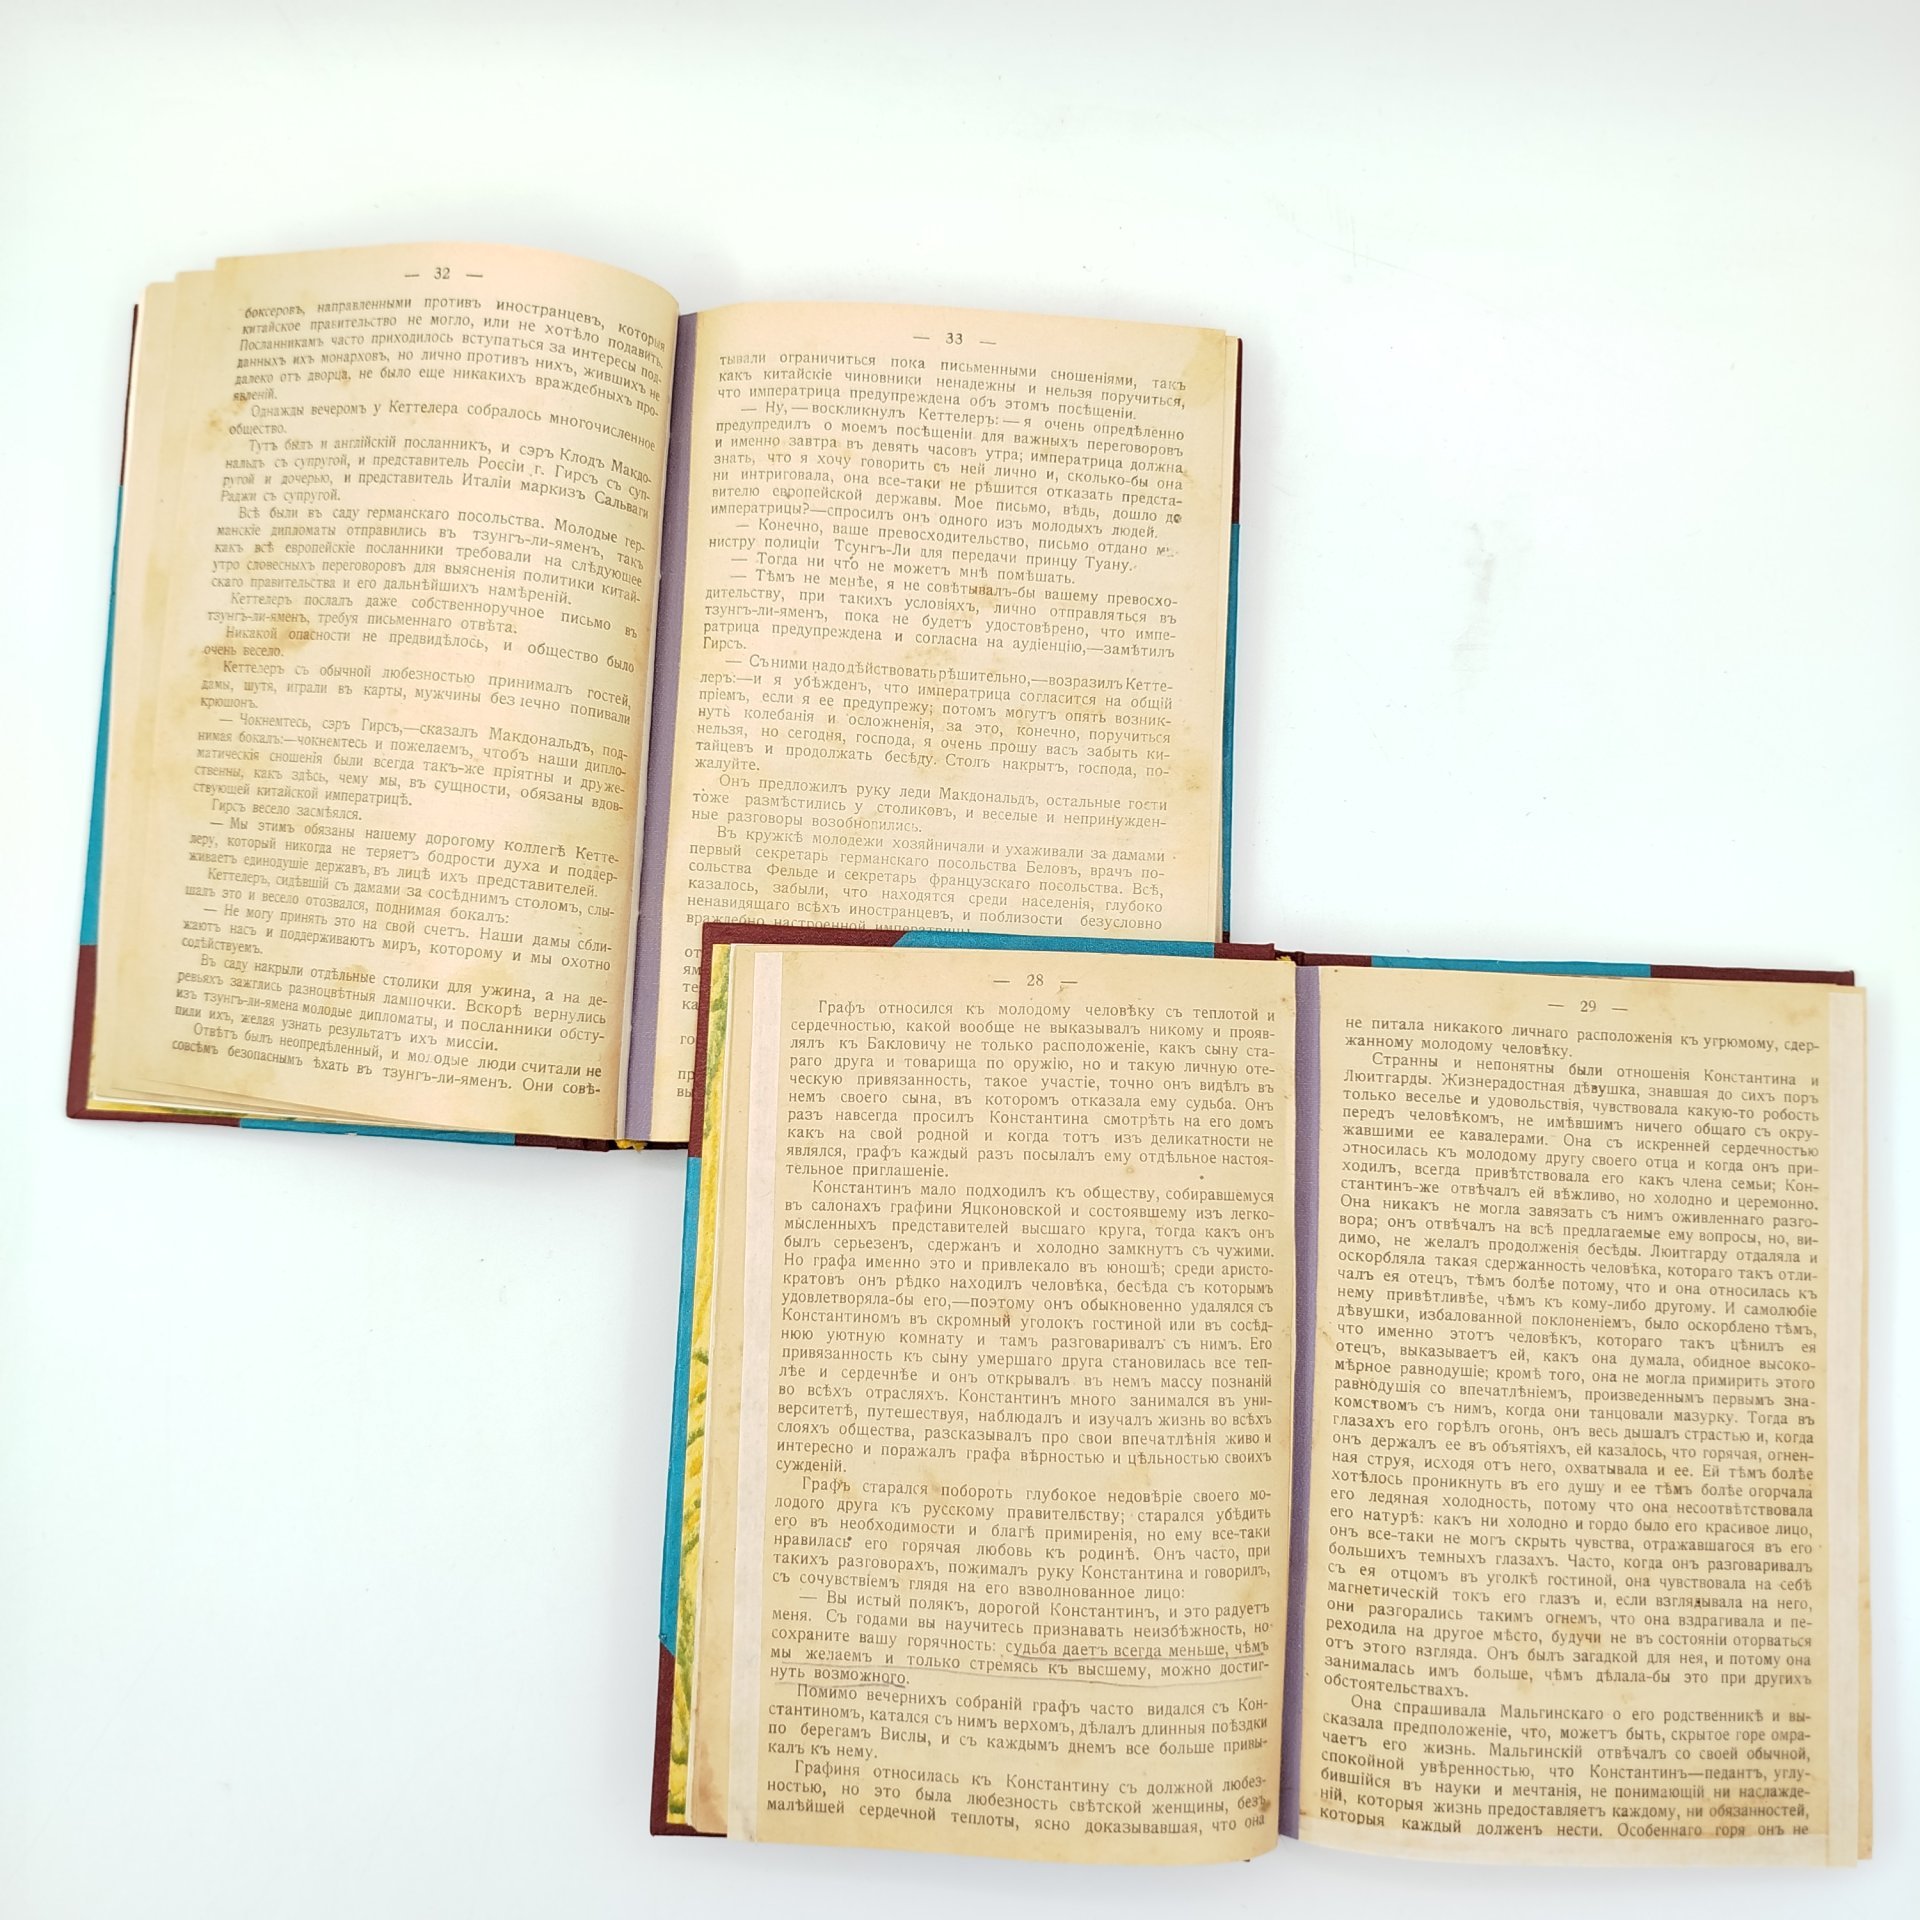 — 32 —
боксеровъ, направленными противъ иностранцевъ, которыя
китайское правительство не могло, или не хотѣло подавить.
Посланникамъ часто приходилось вступаться за интересы под-
данныхъ ихъ монарховъ, но лично противъ нихъ, жившихъ не
далеко отъ дворца, не было еще никакихъ враждебныхъ про-
явленій.
Однажды вечеромъ у Кеттелера собралось многочисленное
общество.
Тутъ былъ и англійскій посланникъ, и сэръ Клодъ Макдо-
нальдъ съ супругой, и представитель Россіи г. Гирсъ съ суп-
ругой и дочерью, и представитель Италіи маркизъ Сальваги
Раджи съ супругой.
Всѣ были въ саду германскаго посольства. Молодые гер-
манскіе дипломаты отправились въ тзунгъ-ли-яменъ, такъ
какъ всѣ европейскіе посланники требовали на слѣдующее
утро словесныхъ переговоровъ для выясненія политики китай-
скаго правительства и его дальнѣйшихъ намѣреній.
Кеттелеръ послалъ даже собственноручное письмо въ
тзунгъ-ли-яменъ, требуя письменнаго отвѣта.
Никакой опасности не предвидѣлось, и общество было
очень весело.
Кеттелеръ съ обычной любезностью принималъ гостей,
дамы, шутя, играли въ карты, мужчины безпечно попивали
крюшонъ.
— Чокнемтесь, сэръ Гирсъ,—сказалъ Макдональдъ, под-
нимая бокалъ:—чокнемтесь и пожелаемъ, чтобъ наши дипло-
матическія сношенія были всегда такъ-же пріятны и друже-
ственны, какъ здѣсь, чему мы, въ сущности, обязаны вдов-
ствующей китайской императрицѣ.
Гирсъ весело засмѣялся.
— Мы этимъ обязаны нашему дорогому коллегѣ Кетте-
леру, который никогда не теряетъ бодрости духа и поддер-
живаетъ единодушіе державъ, въ лицѣ ихъ представителей.
Кеттелеръ, сидѣвшій съ дамами за сосѣднимъ столомъ, слы-
шалъ это и весело отозвался, поднимая бокалъ:
— Не могу принять это на свой счетъ. Наши дамы сбли-
жаютъ насъ и поддерживаютъ миръ, которому и мы охотно
содѣйствуемъ.
Въ саду накрыли отдѣльные столики для ужина, а на де-
ревьяхъ зажглись разноцвѣтныя лампочки. Вскорѣ вернулись
изъ тзунгъ-ли-ямена молодые дипломаты, и посланники обсту-
пили ихъ, желая узнать результатъ ихъ миссіи.
Отвѣтъ былъ неопредѣленный, и молодые люди считали не
совсѣмъ безопаснымъ ѣхать въ тзунгъ-ли-яменъ. Они совѣ-
— 33 —
тывали ограничиться пока письменными сношеніями, такъ
какъ китайскіе чиновники ненадежны и нельзя поручиться,
что императрица предупреждена объ этомъ посѣщеніи.
— Ну, — воскликнулъ Кеттелеръ: — я очень опредѣленно
предупредилъ о моемъ посѣщеніи для важныхъ переговоровъ
и именно завтра въ девять часовъ утра; императрица должна
знать, что я хочу говорить съ ней лично и, сколько-бы она
ни интриговала, она все-таки не рѣшится отказать предста-
вителю европейской державы. Мое письмо, вѣдь, дошло до
императрицы?—спросилъ онъ одного изъ молодыхъ людей.
— Конечно, ваше превосходительство, письмо отдано ми-
нистру полиціи Тсунгъ-Ли для передачи принцу Туану.
— Тогда ни что не можетъ мнѣ помѣшать.
— Тѣмъ не менѣе, я не совѣтывалъ-бы вашему превосхо-
дительству, при такихъ условіяхъ, лично отправляться въ
тзунгъ-ли-яменъ, пока не будетъ удостовѣрено, что импе-
ратрица предупреждена и согласна на аудіенцію,—замѣтилъ
Гирсъ.
— Съ ними надо дѣйствовать рѣшительно,—возразилъ Кетте-
леръ:—и я убѣжденъ, что императрица согласится на общій
пріемъ, если я ее предупрежу; потомъ могутъ опять возник-
нуть колебанія и осложненія, за это, конечно, поручиться
нельзя, но сегодня, господа, я очень прошу васъ забыть ки-
тайцевъ и продолжать бесѣду. Столъ накрытъ, господа, по-
жалуйте.
Онъ предложилъ руку леди Макдональдъ, остальные гости
тоже размѣстились у столиковъ, и веселые и непринужден-
ные разговоры возобновились.
Въ кружкѣ молодежи хозяйничали и ухаживали за дамами
первый секретарь германскаго посольства Беловъ, врачъ по-
сольства Фельде и секретарь французскаго посольства. Всѣ,
казалось, забыли, что находятся среди населенія, глубоко
ненавидящаго всѣхъ иностранцевъ, и поблизости безусловно
враждебно настроенной императрицы.
от
ям
те
ка
го
пр
вы
— 28 —
Графъ относился къ молодому человѣку съ теплотой и
сердечностью, какой вообще не выказывалъ никому и прояв-
лялъ къ Бакловичу не только расположеніе, какъ сыну ста-
раго друга и товарища по оружію, но и такую личную оте-
ческую привязанность, такое участіе, точно онъ видѣлъ въ
немъ своего сына, въ которомъ отказала ему судьба. Онъ
разъ навсегда просилъ Константина смотрѣть на его домъ
какъ на свой родной и когда тотъ изъ деликатности не
являлся, графъ каждый разъ посылалъ ему отдѣльное настоя-
тельное приглашеніе.
Константинъ мало подходилъ къ обществу, собиравшемуся
въ салонахъ графини Яцконовской и состоявшему изъ легко-
мысленныхъ представителей высшаго круга, тогда какъ онъ
былъ серьезенъ, сдержанъ и холодно замкнутъ съ чужими.
Но графа именно это и привлекало въ юношѣ; среди аристо-
кратовъ онъ рѣдко находилъ человѣка, бесѣда съ которымъ
удовлетворяла-бы его,—поэтому онъ обыкновенно удалялся съ
Константиномъ въ скромный уголокъ гостиной или въ сосѣд-
нюю уютную комнату и тамъ разговаривалъ съ нимъ. Его
привязанность къ сыну умершаго друга становилась все теп-
лѣе и сердечнѣе и онъ открывалъ въ немъ массу познаній
во всѣхъ отрасляхъ. Константинъ много занимался въ уни-
верситетѣ, путешествуя, наблюдалъ и изучалъ жизнь во всѣхъ
слояхъ общества, разсказывалъ про свои впечатлѣнія живо и
интересно и поражалъ графа вѣрностью и цѣльностью своихъ
сужденій.
Графъ старался побороть глубокое недовѣріе своего мо-
лодого друга къ русскому правительству; старался убѣдить
его въ необходимости и благѣ примиренія, но ему все-таки
нравилась его горячая любовь къ родинѣ. Онъ часто, при
такихъ разговорахъ, пожималъ руку Константина и говорилъ,
съ сочувствіемъ глядя на его взволнованное лицо:
— Вы истый полякъ, дорогой Константинъ, и это радуетъ
меня. Съ годами вы научитесь признавать неизбѣжность, но
сохраните вашу горячность: судьба даетъ всегда меньше, чѣмъ
мы желаемъ и только стремясь къ высшему, можно достиг-
нуть возможного.
Помимо вечернихъ собраній графъ часто видался съ Кон-
стантиномъ, катался съ нимъ верхомъ, дѣлалъ длинныя поѣздки
по берегамъ Вислы, и съ каждымъ днемъ все больше привы-
калъ къ нему.
Графиня относилась къ Константину съ должной любез-
ностью, но это была любезность свѣтской женщины, безъ
малѣйшей сердечной теплоты, ясно доказывавшая, что она
— 29 —
не питала никакого личнаго расположенія къ угрюмому, сдер-
жанному молодому человѣку.
Странны и непонятны были отношенія Константина и
Люитгарды. Жизнерадостная дѣвушка, знавшая до сихъ поръ
только веселье и удовольствія, чувствовала какую-то робость
передъ человѣкомъ, не имѣвшимъ ничего общаго съ окру-
жавшими ее кавалерами. Она съ искренней сердечностью
относилась къ молодому другу своего отца и когда онъ при-
ходилъ, всегда привѣтствовала его какъ члена семьи; Кон-
стантинъ-же отвѣчалъ ей вѣжливо, но холодно и церемонно.
Она никакъ не могла завязать съ нимъ оживленнаго разго-
вора; онъ отвѣчалъ на всѣ предлагаемые ему вопросы, но, ви-
димо, не желалъ продолженія бесѣды. Люитгарду отдаляла и
оскорбляла такая сдержанность человѣка, котораго такъ отли-
чалъ ея отецъ, тѣмъ болѣе потому, что и она относилась къ
нему привѣтливѣе, чѣмъ къ кому-либо другому. И самолюбіе
дѣвушки, избалованной поклоненіемъ, было оскорблено тѣмъ,
что именно этотъ человѣкъ, котораго такъ цѣнилъ ея
отецъ, выказываетъ ей, какъ она думала, обидное высоко-
мѣрное равнодушіе; кромѣ того, она не могла примирить этого
равнодушія со впечатлѣніемъ, произведеннымъ первымъ зна-
комствомъ съ нимъ, когда они танцовали мазурку. Тогда въ
глазахъ его горѣлъ огонь, онъ весь дышалъ страстью и, когда
онъ держалъ ее въ объятіяхъ, ей казалось, что горячая, огнен-
ная струя, исходя отъ него, охватывала и ее. Ей тѣмъ болѣе
хотѣлось проникнуть въ его душу и ее тѣмъ болѣе огорчала
его ледяная холодность, потому что она несоотвѣтствовала
его натурѣ: какъ ни холодно и гордо было его красивое лицо,
онъ все-таки не могъ скрыть чувства, отражавшагося въ его
большихъ темныхъ глазахъ. Часто, когда онъ разговаривалъ
съ ея отцомъ въ уголкѣ гостиной, она чувствовала на себѣ
магнетическій токъ его глазъ и, если взглядывала на него,
они разгорались такимъ огнемъ, что она вздрагивала и пе-
реходила на другое мѣсто, будучи не въ состояніи оторваться
отъ этого взгляда. Онъ былъ загадкой для нея, и потому она
занималась имъ больше, чѣмъ дѣлала-бы это при другихъ
обстоятельствахъ.
Она спрашивала Мальгинскаго о его родственникѣ и вы-
сказала предположеніе, что, можетъ быть, скрытое горе омра-
чаетъ его жизнь. Мальгинскій отвѣчалъ со своей обычной,
спокойной увѣренностью, что Константинъ—педантъ, углу-
бившійся въ науки и мечтанія, не понимающій ни наслажде-
ній, которыя жизнь предоставляетъ каждому, ни обязанностей,
которыя каждый долженъ нести. Особеннаго горя онъ не